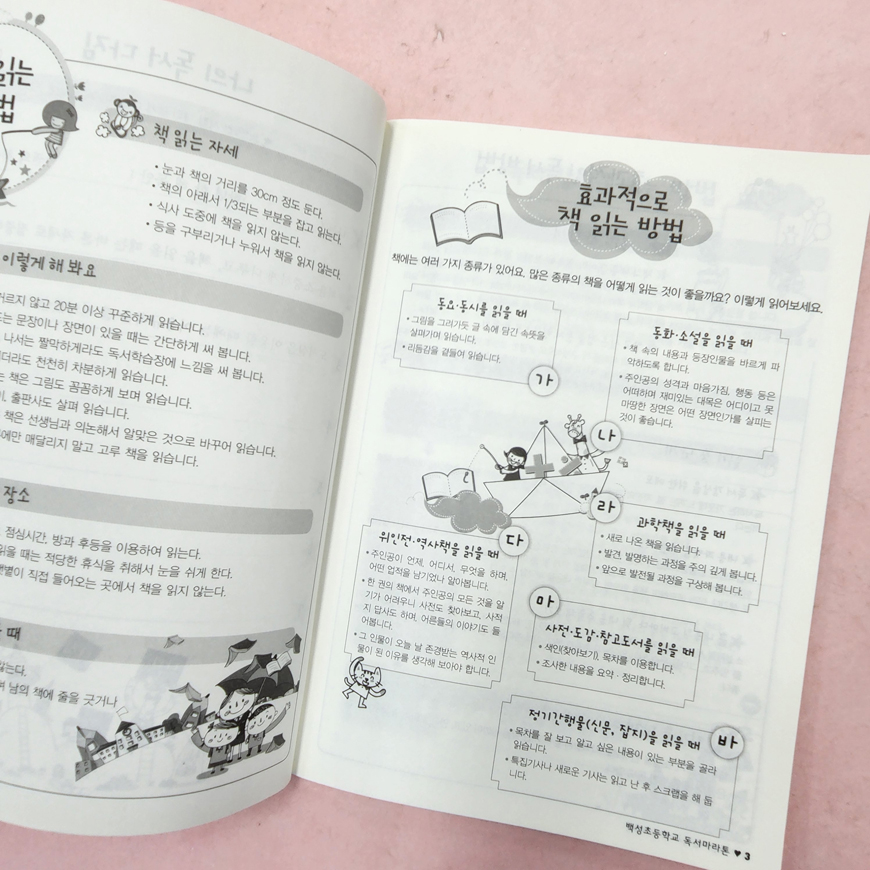 읽는
법
책 읽는 자세
• 눈과 책의 거리를 30cm 정도 둔다.
• 책의 아래서 1/3되는 부분을 잡고 읽는다.
• 식사 도중에 책을 읽지 않는다.
• 등을 구부리거나 누워서 책을 읽지 않는다.
이렇게 해 봐요
거르지 않고 20분 이상 꾸준하게 읽습니다.
문장이나 장면이 있을 때는 간단하게 써 봅니다.
나서는 짤막하게라도 독서학습장에 느낌을 써 봅니다.
천천히 차분하게 읽습니다.
책은 그림도 꼼꼼하게 보며 읽습니다.
출판사도 살펴 읽습니다.
책은 선생님과 의논해서 알맞은 것으로 바꾸어 읽습니다.
매달리지 말고 고루 책을 읽습니다.
장소
점심시간, 방과 후등을 이용하여 읽는다.
읽을 때는 적당한 휴식을 취해서 눈을 쉬게 한다.
햇볕이 직접 들어오는 곳에서 책을 읽지 않는다.
때
않는다.
남의 책에 줄을 긋거나
효과적으로
책 읽는 방법
책에는 여러 가지 종류가 있어요. 많은 종류의 책을 어떻게 읽는 것이 좋을까요? 이렇게 읽어보세요.
동요·동시를 읽을 때
• 그림을 그려가듯 글 속에 담긴 속뜻을
살펴가며 읽습니다.
• 리듬감을 곁들여 읽습니다.
가
동화·소설을 읽을 때
• 책 속의 내용과 등장인물을 바르게 파
악하도록 합니다.
• 주인공의 성격과 마음가짐, 행동 등은
어떠하며 재미있는 대목은 어디이고 못
마땅한 장면은 어떤 장면인가를 살피는
것이 좋습니다.
나
다
위인전·역사책을 읽을 때
• 주인공이 언제, 어디서, 무엇을 하며,
어떤 업적을 남기었나 알아봅니다.
• 한 권의 책에서 주인공의 모든 것을 알
기가 어려우니 사전도 찾아보고, 사적
지 답사도 하며, 어른들의 이야기도 들
어봅니다.
• 그 인물이 오늘 날 존경받는 역사적 인
물이 된 이유를 생각해 보아야 합니다.
라
과학책을 읽을 때
• 새로 나온 책을 읽습니다.
• 발견, 발명하는 과정을 주의 깊게 봅니다.
• 앞으로 발전될 과정을 구상해 봅니다.
마
사전·도감·참고도서를 읽을 때
• 색인(찾아보기), 목차를 이용합니다.
• 조사한 내용을 요약·정리합니다.
정기간행물(신문, 잡지)을 읽을 때
바
• 목차를 잘 보고 알고 싶은 내용이 있는 부분을 골라
읽습니다.
• 특집기사나 새로운 기사는 읽고 난 후 스크랩을 해 둡
니다.
백성초등학교 독서마라톤 ♥ 3